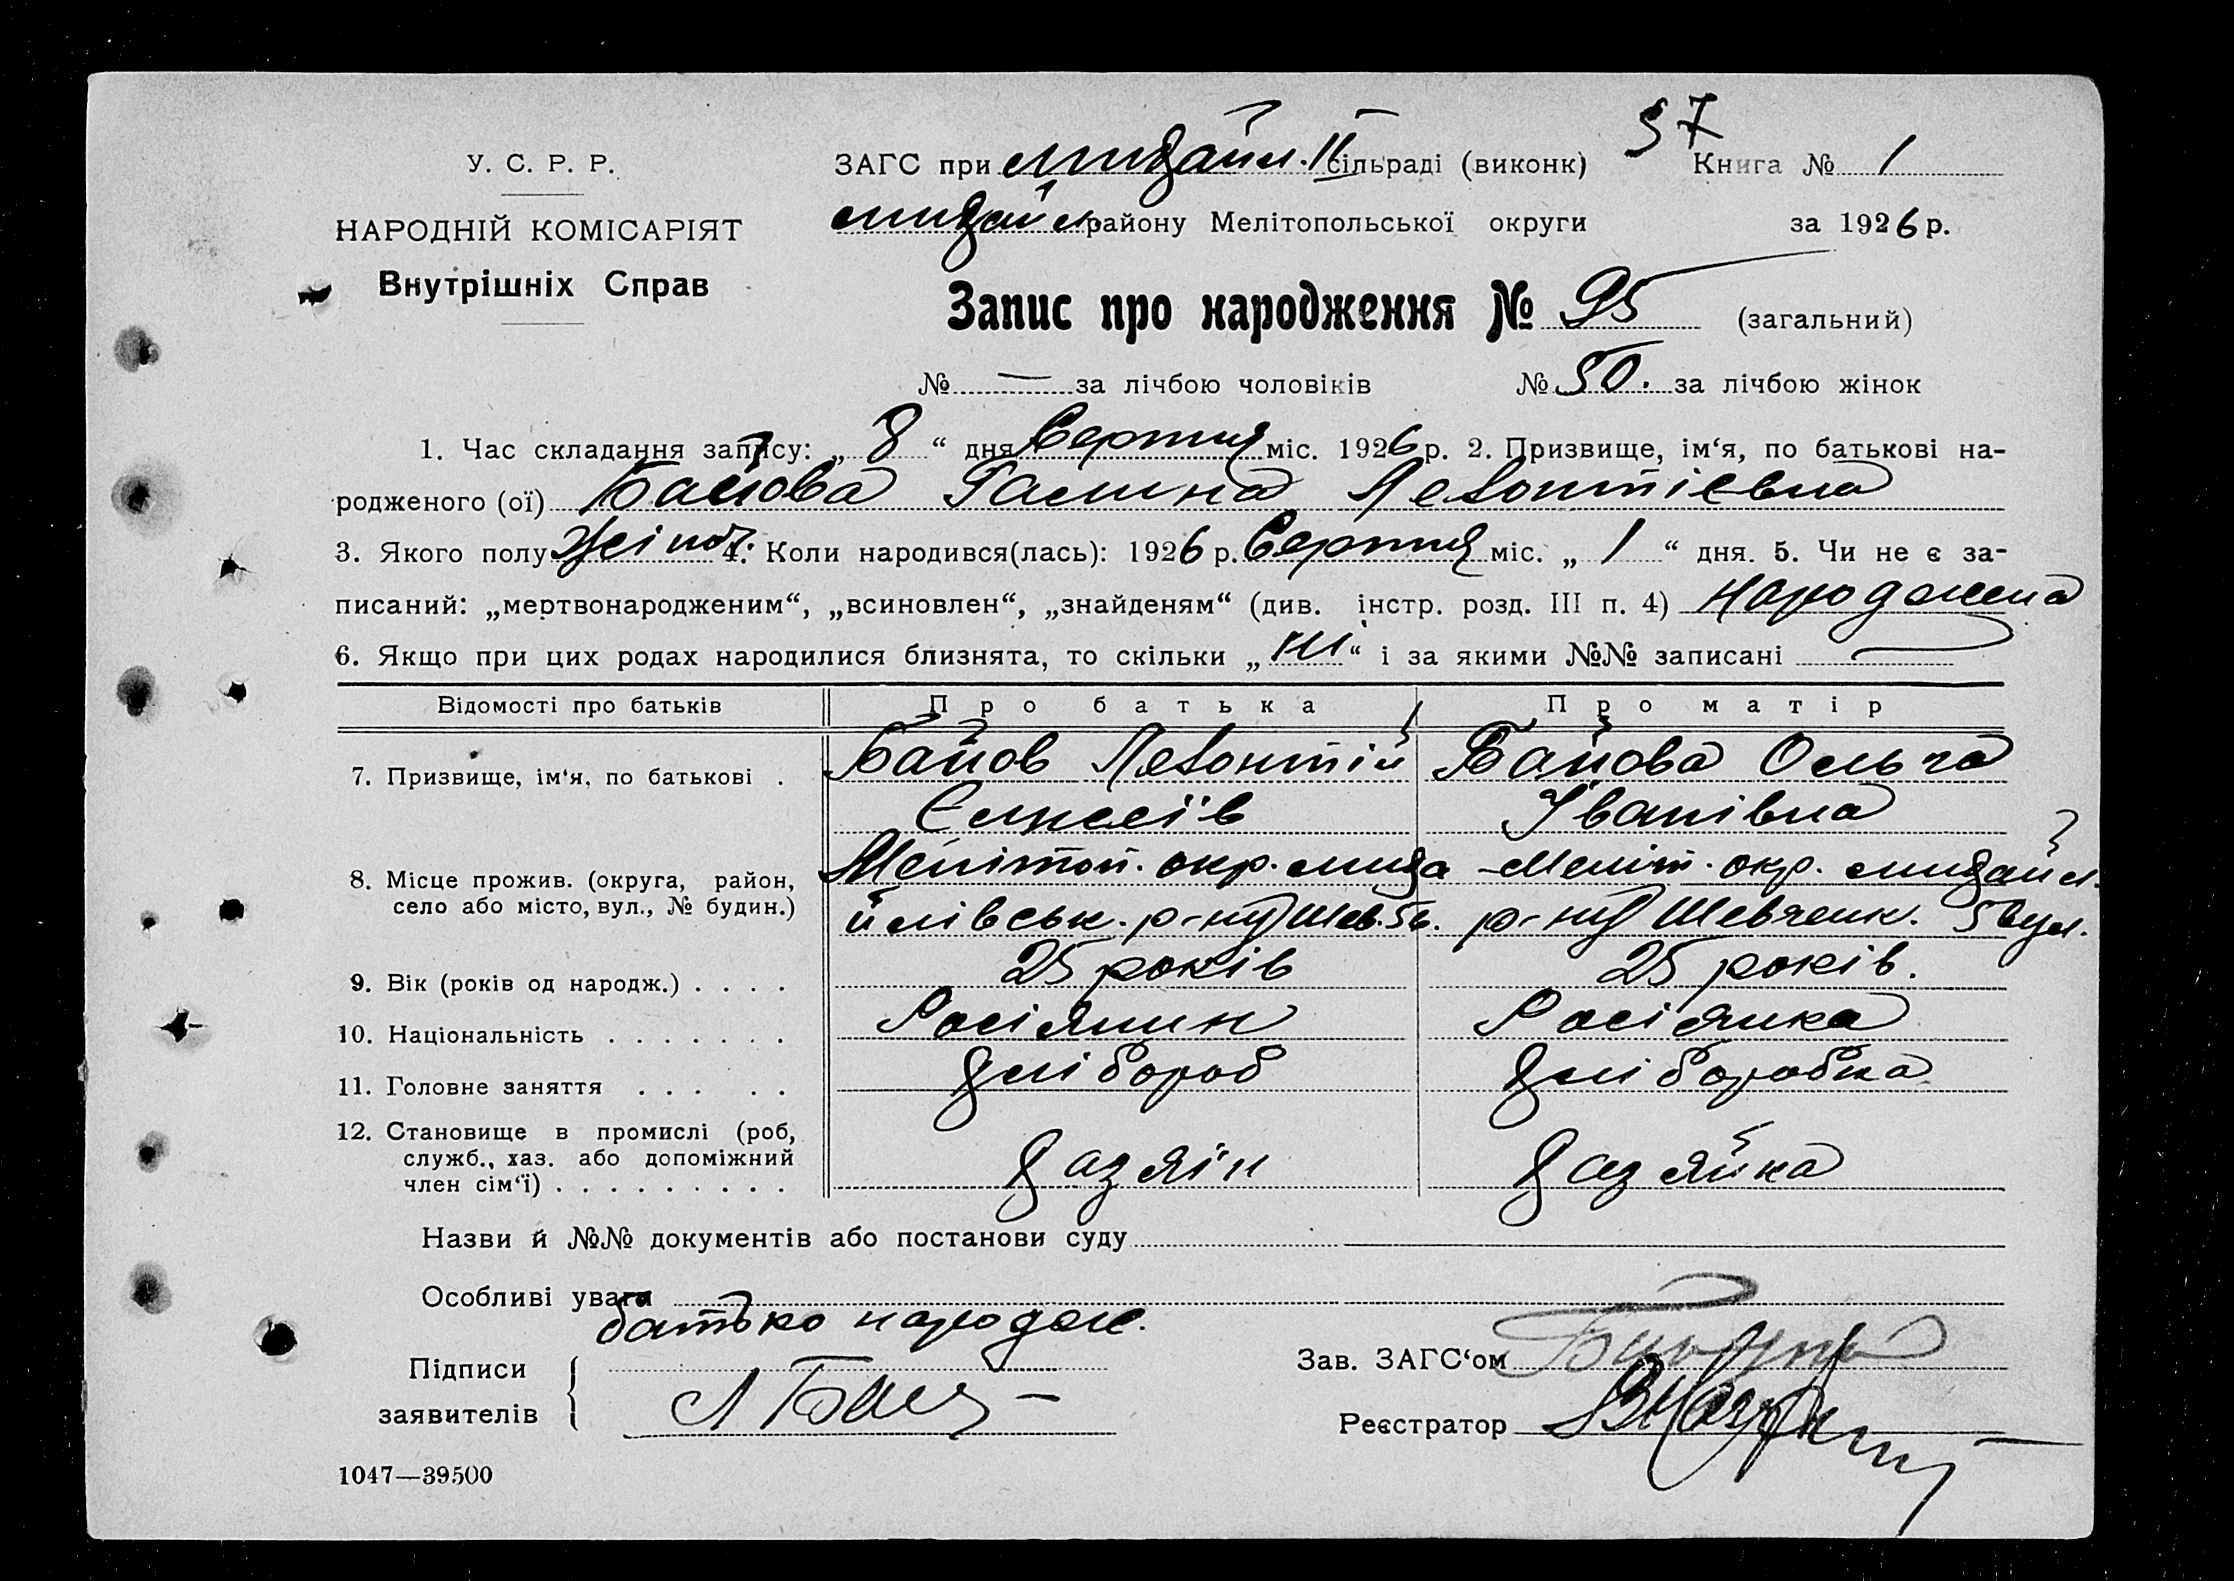 57
У. С. Р. Р.
ЗАГС при Михайл. II сільраді (виконк) Книга № 1
НАРОДНІЙ КОМІСАРІЯТ
Михайл. району Мелітопольської округи за 1926 р.
Внутрішніх Справ
Запис про народження № 95 (загальний)
№ — за лічбою чоловіків № 50. за лічбою жінок
1. Час складання запису: „ 8 “ дня Серпня міс. 1926 р. 2. Призвище, ім‘я, по батькові на-
родженого (ої) Байова Галина Левонтієвна
3. Якого полу жіноч. 4. Коли народився(лась): 1926 р. Серпня міс. „ 1 “ дня. 5. Чи не є за-
писаний: „мертвонародженим“, „всиновлен“, „знайденям“ (див. інстр. розд. III п. 4) народжена
6. Якщо при цих родах народилися близнята, то скільки „ ні “ і за якими №№ записані —
Відомості про батьків Про батька Про матір
7. Призвище, ім‘я, по батькові . Байов Левонтій Байова Ольга
Єлисеїв Іванівна
8. Місце прожив. (округа, район, Меліт оп. окр. Миха Меліт. окр. Михайл.
село або місто, вул., № будин.) йлівськ. р-ну Шев. 5 в. р-ну Шевченк. 5 вул.
9. Вік (років од народж.) . . . . 25 років 25 років.
10. Національність . . . . . . . Росіянин Росіянка
11. Головне заняття . . . . . хлібороб хліборобка
12. Становище в промислі (роб,
служб., хаз. або допоміжний хазяїн хазяйка
член сім‘ї) . . . . . . . . .
Назви й №№ документів або постанови суду
Особливі уваги
батько народж.
Підписи
Зав. ЗАГС‘ом
заявителів Л Бай
Реєстратор
1047—39500